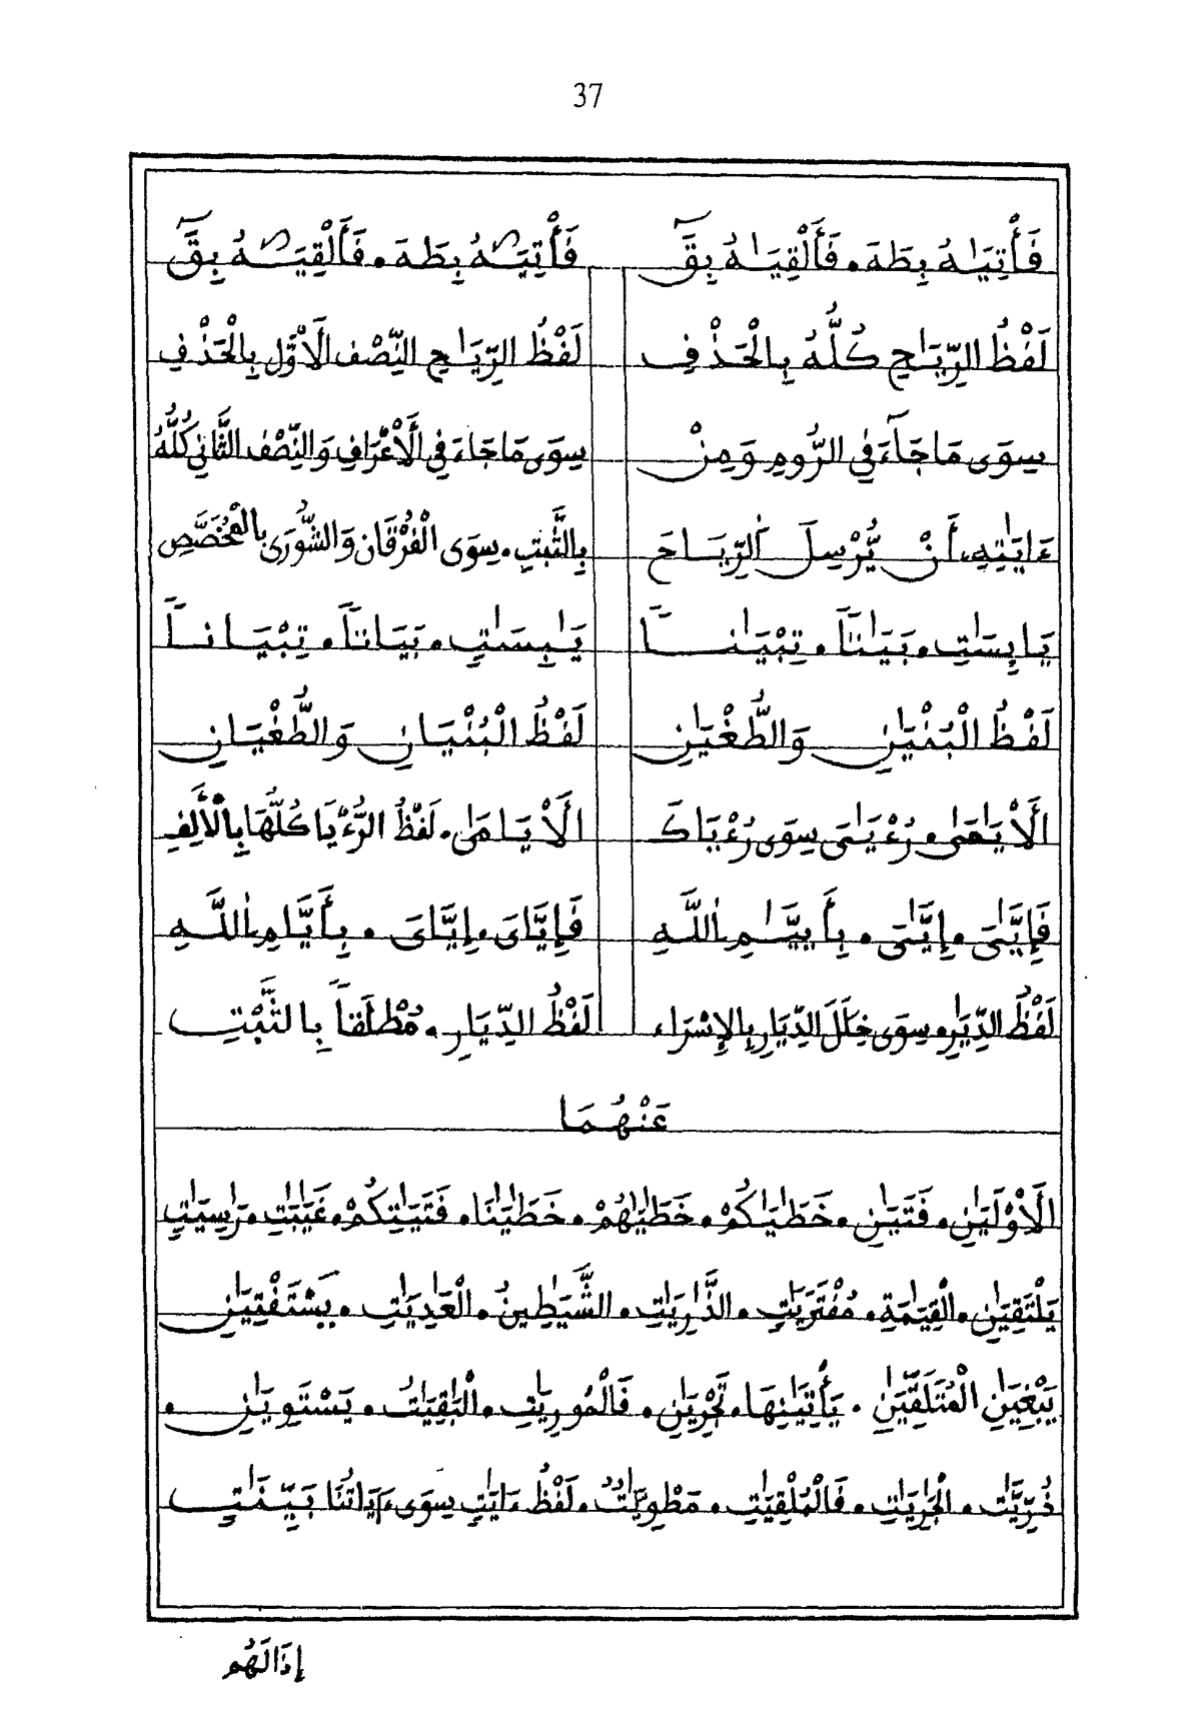 37
فَأْتِيَٰهُ بِطَهَ • فَأَلْقِيَٰهُ بِقَٓ
فَأْتِيَـٰهُ بِطَهَ • فَأَلْقِيَـٰهُ بِقَٓ
لَفْظُ الرِّيَٰحِ كُلُّهُ بِالْحَذْفِ
لَفْظُ الرِّيَٰحِ النِّصْفِ الَاوَّلِ بِالْحَذْفِ
سِوَى مَا جَآءَ فِى الرُّومِ وَمِنْ
سِوَى مَا جَاءَ فِى الَاعْرَافِ وَالنِّصْفِ الثَّانِى كُلُّهُ
ءَايَٰتِهِۦ أَنْ يُّرْسِلَ اَ۬لرِّيَاحَ
بِالثَّبْتِ • سِوَى الْفُرْقَانِ وَالشُّورَى بِالْمُخَصَّصِ
يَابِسَٰتٍ • بَيَٰتاً • تِبْيَٰناً
يَٰبِسَٰتٍ • بَيَاتاً • تِبْيَاناً
لَفْظُ الْبُنْيَٰنِ وَالطُّغْيَٰنِ
لَفْظُ الْبُنْيَانِ وَالطُّغْيَانِ
الَايَٰمَىٰ • رُءْيَٰىَ سِوَى رُءْيَاكَ
الَايَامَىٰ • لَفْظُ الرُّءْيَا كُلُّهَا بِالْأَلِفِ
فَإِيَّٰىَ • إِيَّٰىَ • بِأَييَّٰمِ اِ۬للَّهِ
فَإِيَّاىَ • إِيَّاىَ • بِأَيَّامِ اِ۬للَّهِ
لَفْظُ الدِّيَٰرِ • سِوَى خِلَلَ الدِّيَارِ بِالإِسْرَاءِ
لَفْظُ الدِّيَارِ • مُطْلَقاً بِالثَّبْتِ
عَنْهُمَا
الَاوْلَيَٰنِ • فَتَيَٰنِ • خَطَٰيَٰكُمْ • خَطَٰيَٰهُمْ • خَطَٰيَٰنَا • فَتَيَٰتِكُمْ • غَيَٰبَٰتِ • رَٰسِيَٰتٍ
يَلْتَقِيَٰنِ • الْقِيَٰمَةِ • مُفْتَرَيَٰتٍ • الذَّٰرِيَٰتِ • الشَّيَٰطِينُ • الْعَٰدِيَٰتِ • يَسْتَفْتِيَٰنِ
يَبْغِيَٰنِ الْمُتَلَقِّيَٰنِ • يَأْتِيَٰنِهَا • تَجْرِيَٰنِ • فَالْمُورِيَٰتِ • الْبَٰقِيَٰتُ • يَسْتَوِيَٰنِ •
ذُرِّيَّٰتِ • الْجَٰرِيَٰتِ • فَالْمُلْقِيَٰتِ • مَطْوِيَّٰتٌ • لَفْظُ ءَايَٰتِ سِوَى ءَايَاتُنَا بَيِّنَٰتٍ
إِذَا لَهُم